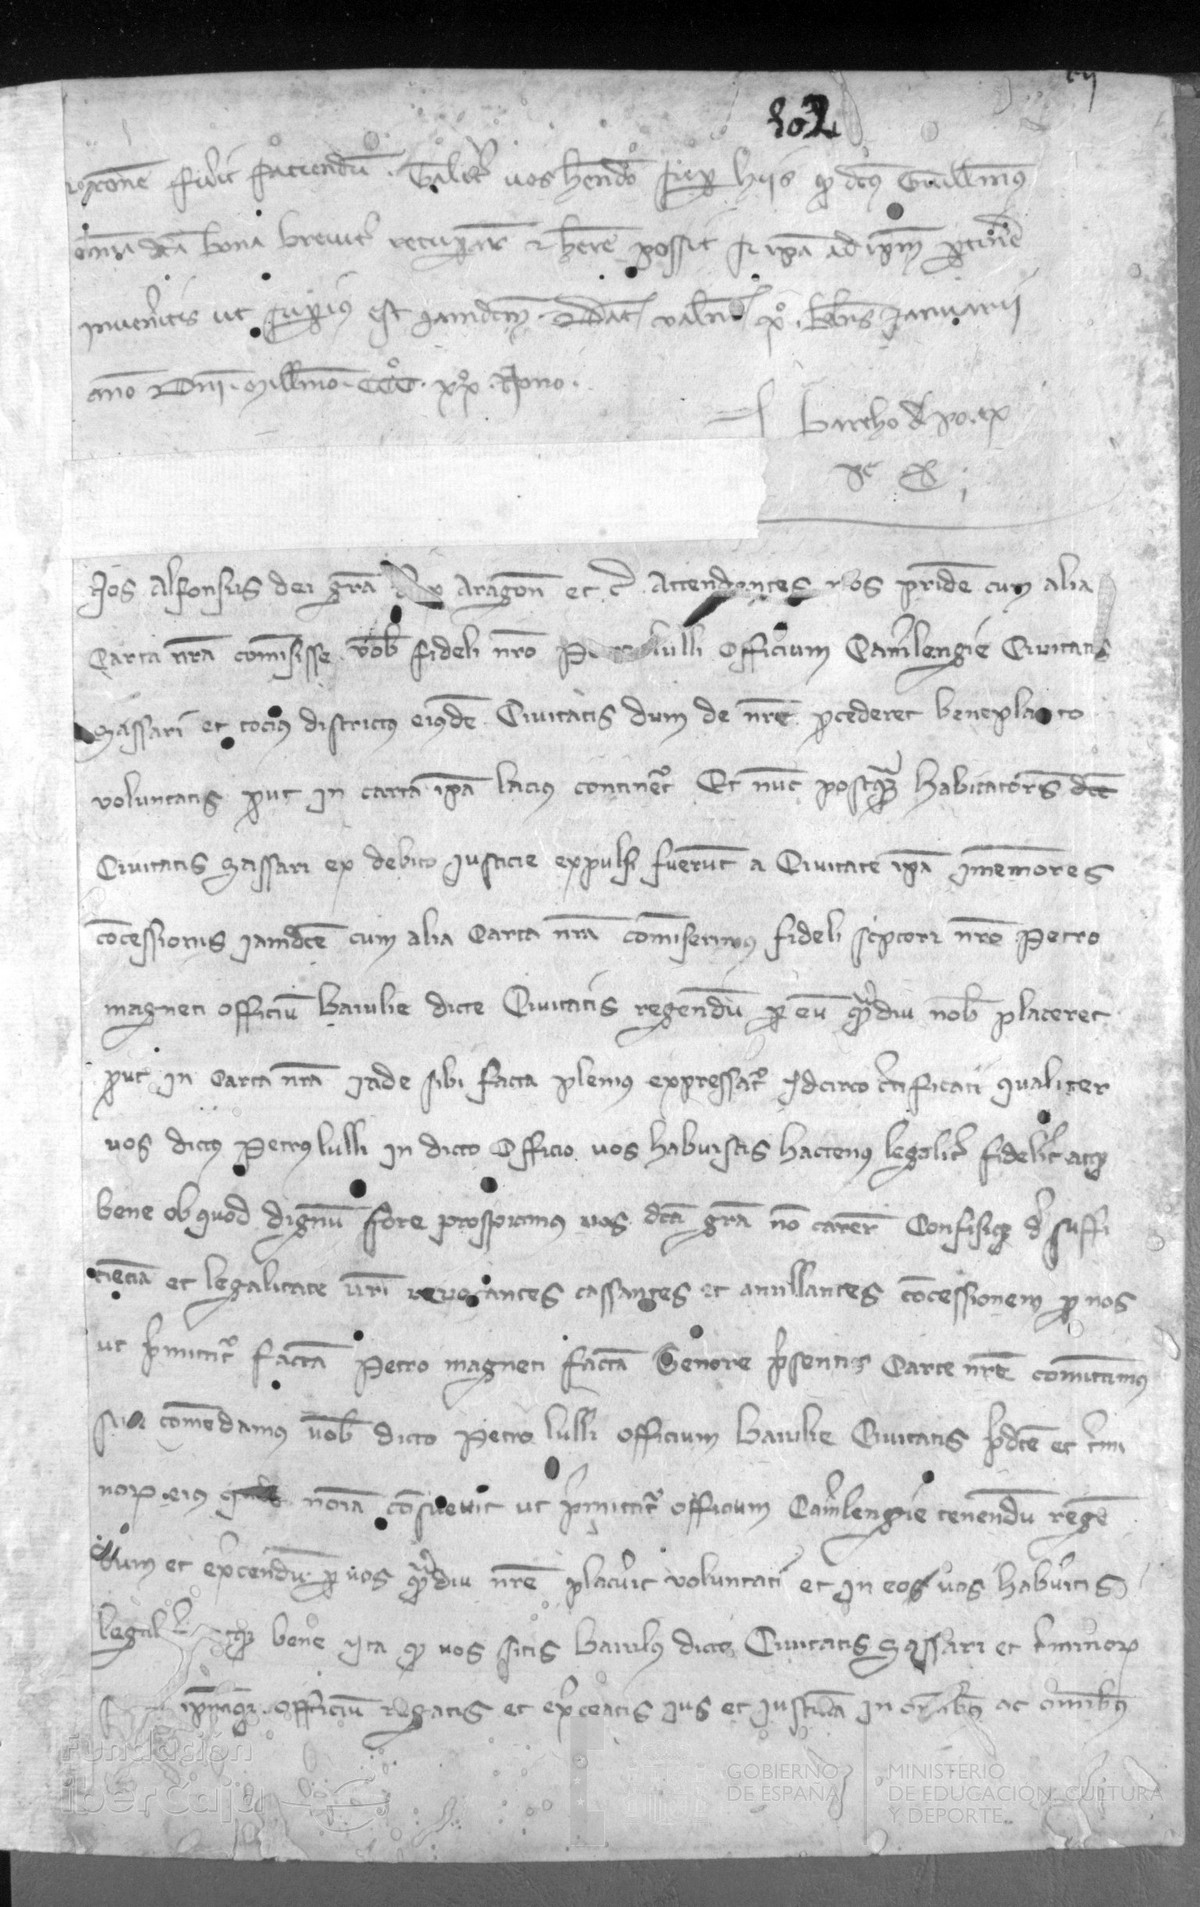 cij
102
fuerit faciendum. Talit(er) vos h(ab)endo sup(er) hiis q(uod) d(i)c(t)us Guill(el)mus
om(n)ia d(i)c(t)a bona brevit(er) recup(er)are (et) h(ab)ere possit si ip(s)a ad ip(su)m p(er)tin(er)e
inven(er)itis ut sup(er)ius est iamd(i)c(tu)m. Dat(um) Valen(tie) Januarii
an(n)o D(omi)ni Mill(esi)mo CCC xx nono.
Nos Alfonsus dei gr(aci)a Rex Aragon(um) et c(etera) Attendentes nos pridem cum alia
Carta n(ost)ra com(m)isisse vob(is) fideli n(ost)ro Petro lulli Officium Cam(er)lengie Civitatis
Sassari et tocius districtus eiusde(m) Civitatis dum de n(ost)re p(ro)cederet beneplacito
voluntatis p(ro)ut in carta ip(s)a lacius continet(ur) Et nu(n)c postq(uam) habitatores d(i)c(t)e
Civitatis Sassari ex debito iusticie expulsi fueru(n)t a Civitate ip(s)a i(m)memores
co(n)cessionis iamd(i)c(t)e cum alia Carta n(ost)ra com(m)iserimus fideli sc(ri)ptori n(ost)ro Petro
magneti officiu(m) Baiulie dicte Civitatis regendu(m) p(er) eu(m) q(ua)mdiu nob(is) placeret
p(ro)ut in Carta n(ost)ra inde sibi facta plenius expressat(ur) Idcirco c(er)tificati qualiter
vos dictus Petrus lulli in dicto Officio vos habuistis hactenus legalit(er) fidelit(er) atq(ue)
bene ob quod dignu(m) fore prospicimus vos d(i)c(t)a gr(aci)a no(n) carere Confisiq(ue) de suffi
cie(n)cia et legalitate v(est)ri revocantes cassantes et anullantes co(n)cessionem p(er) nos
ut p(re)mittit(ur) factam Petro magneti factam Tenore p(re)sentis Carte n(ost)re com(m)ittimus
seu comendamus vob(is) dicto Petro lulli officium Baiulie Civitatis p(re)d(i)c(t)e et t(er)mi
nor(um) eius no(m)i(n)a(ri) co(n)suevit ut p(re)mittit(ur) officium Cam(er)lengie tenendu(m) rege(n)
dum et ex(er)cendu(m) p(er) vos q(ua)mdiu n(ost)re placu(er)it voluntati et in eo vos habu(er)itis
legalit(er) atq(ue) bene ita q(uod) vos sitis baiulus dicte Civitatis Sassari et t(er)minor(um)
ip(s)ius officiu(m) regatis et ex(er)ceatis ius et iusticia(m) in om(n)ibus ac om(n)ibus
Fundación
iberCaja
GOBIERNO
DE ESPAÑA
MINISTERIO
DE EDUCACIÓN, CULTURA
Y DEPORTE